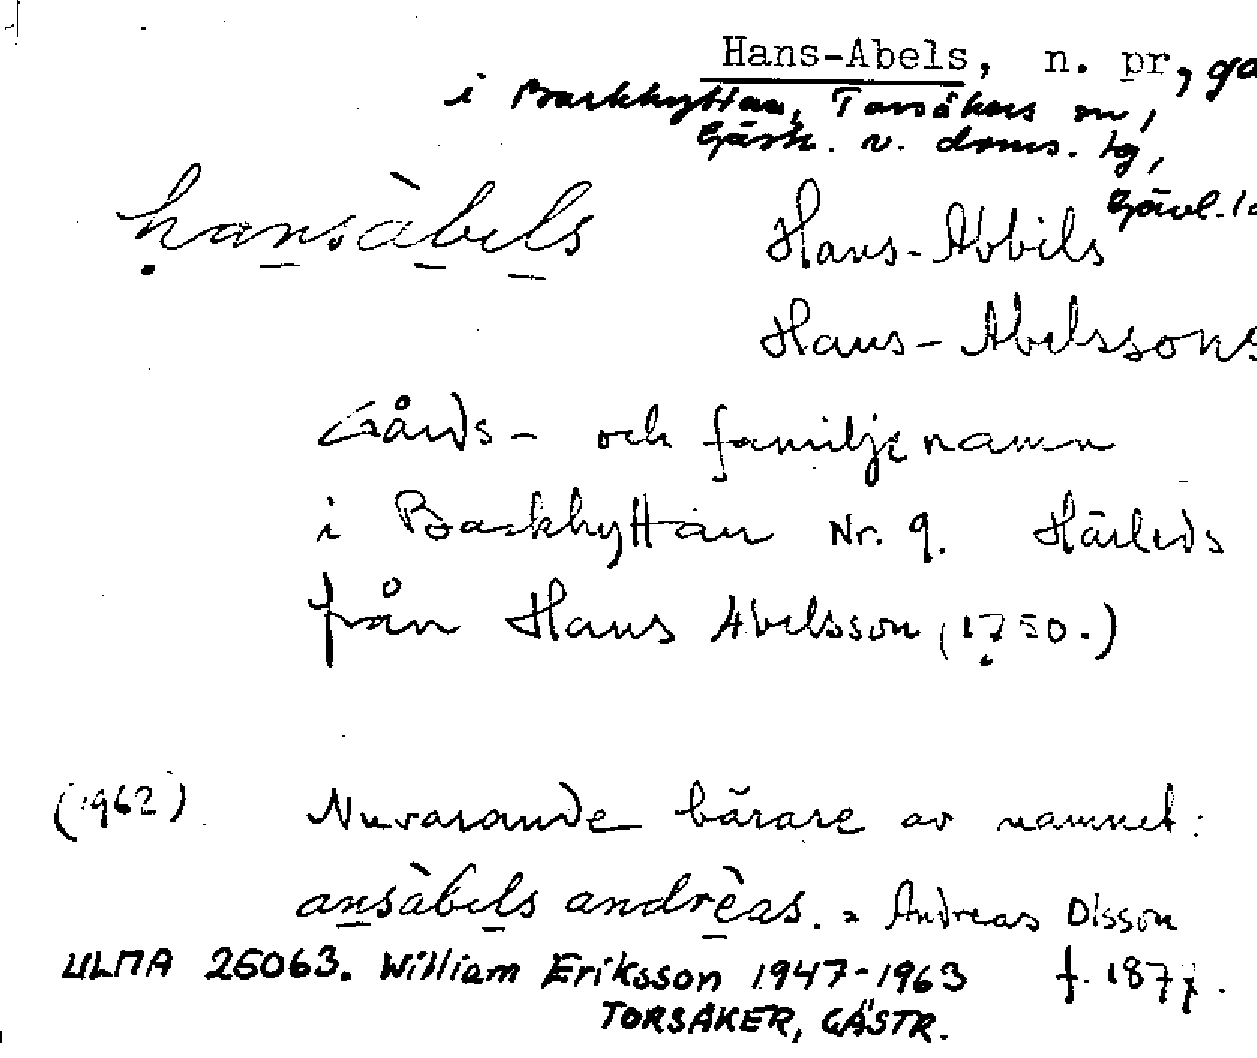 Hans-Abels, n. pr, ga
i Barkhyttan, Torsåkers sn,
Gästr. v. doms. tg,
Gävl. l
hansàbels Hans-Abbils
Hans-Abelssons
Gårds- och familjenamn
i Barkhyttan Nr. 9. Härleds
från Hans Abelsson (1750.)
(1962) Nuvarande bärare av namnet:
ansàbels andrèas. = Andreas Olsson
ULMA 26063. William Eriksson 1947-1963 f. 1877.
TORSÅKER, GÄSTR.